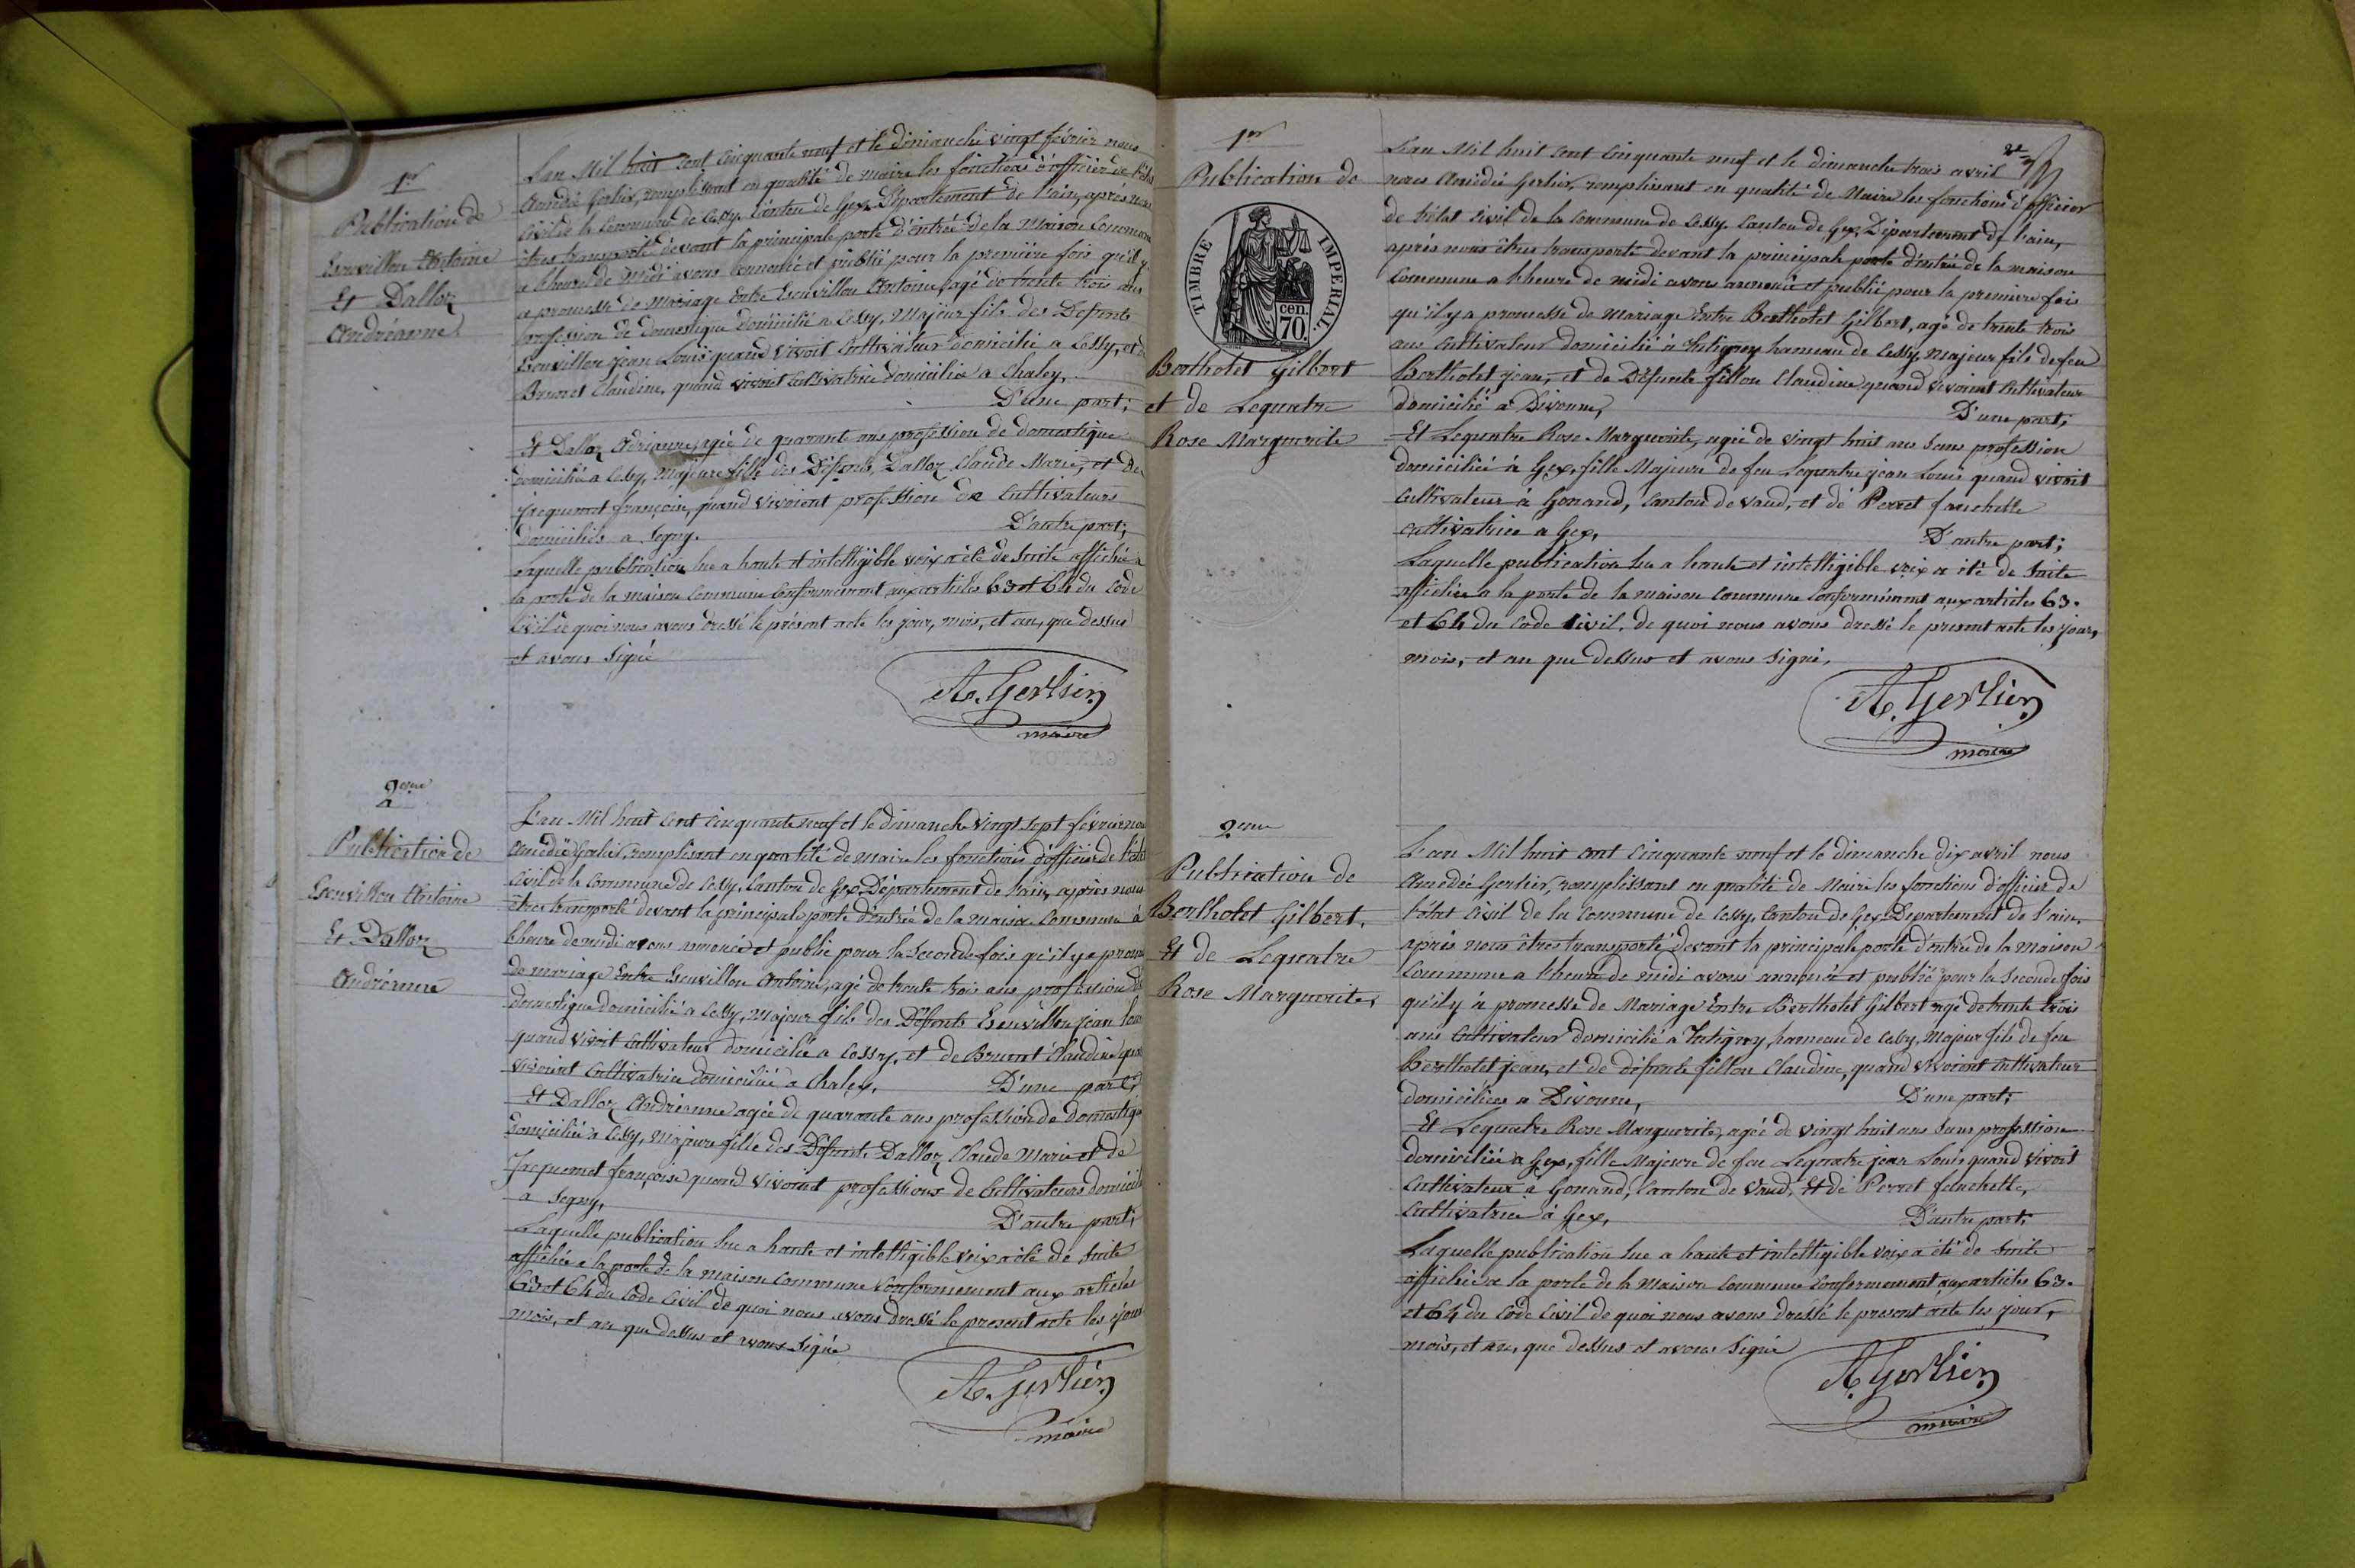 1er
Publication de
Esenvillon Antoine
Et Dalloz
Andréanne.
L'an Mil huit cent cinquante neuf et le dimanche vingt février nous
Amédé Gerlier, remplissant en qualité de maire les fonctions d'officier de l'état
Civil de la Commune de Cessy, Canton de Gex, Département de l'ain, après nous
êtres transporté devant la principale porte d'entrée de la Maison Commune
a lheure de Midi avons annoncé et publié pour la première fois qu'il y
a promesse de Mariage Entre Esenvillon Antoine, agé de trente trois ans
profession de domestique domicilié a Cessy, Majeur fils des Defunts
Esenvillon jean Louis quand vivoit Cultivateur domicilié a Cessy, et de
Brunet Claudine, quand vivoit Cultivatrice domiciliée a Chaley,
D'une part;
Et Dalloz Adrianne, agée de quarante ans profession de domestique
domiciliée a Cessy, Majeure fille des Défunts, Dalloz Claude Marie, et de
Jaquemet françoise, quand vivoient profession de Cultivateurs
domiciliés a Segny.
D'autre part;
Laquelle publication lue a haute et intelligible voix a été de suite affichée a
la porte de la maison Commune Conformément aux articles 63 et 64 du Code
Civil de quoi nous avons dressé le présent acte les jour, mois, et an, que dessus
et avons signé
A. Gerlier
maire
2eme
Publication de
Esenvillon Antoine
Et Dalloz
Andréanne
L'an Mil huit cent cinquante neuf et le dimanche vingt sept février nous
Amédé Gerlier, remplissant en qualité de maire les fonctions d'officier de l'état
Civil de la Commune de Cessy, Canton de Gex, Département de l'ain, après nous
êtres transporté devant la principale porte d'entrée de la maison Commune à
lheure de midi avons annoncé et publié pour la Seconde fois qu'il y a promesse
de mariage Entre Esenvillon Antoine, agé de trente trois ans profession de
domestique domicilié a Cessy, Majeur fils des Défunts Esenvillon jean Louis
quand vivoit Cultivateur domicilié a Cessy, et de Brunet Claudine quand
vivoient Cultivatrice domiciliée a Chaley,
D'une part;
Et Dalloz Andréanne agée de quarante ans profession de domestique
domiciliée a Cessy, Majeure fille des Défunts Dalloz Claude Marie et de
Jaquemet françoise quand vivoient professions de Cultivateurs domiciliés
a Segny,
D'autre part;
Laquelle publication lue a haute et intelligible voix a été de suite
affichée a la porte de la maison Commune Conformément aux articles
63 et 64 du Code Civil de quoi nous avons dressé le present acte les jour
mois, et an que dessus et avons signé
A. Gerlier
maire
1er
Publication de
TIMBRE IMPERIAL.
cen.
70.
Berthotet Gilbert
et de Lequatre
Rose Marguerite
L'an Mil huit cent Cinquante neuf et le dimanche trois avril
nous Amédé Gerlier, remplissant en qualité de Maire les fonctions d'officier
de l'état Civil de la Commune de Cessy, Canton de Gex, Département de l'ain,
après nous êtres transporté devant la principale porte d'entrée de la maison
Commune a lheure de midi avons annoncé et publié pour la première fois
qu'il y a promesse de Mariage Entre Berthotet Gilbert, agé de trente trois
ans Cultivateur domicilié à Intigny hameau de Cessy, Majeur fils de feu
Berthotet jean, et de Défunte fillon Claudine quand vivoient Cultivateur
domicilié a Divonne,
D'une part;
Et Lequatre Rose Marguerite, agée de vingt huit ans Sans profession
domiciliée à Gex, fille Majeure de feu Lequatre jean Louis quand vivoit
Cultivateur à Gonand, Canton de Vaud, et de Perret fanchette
Cultivatrice a Gex,
D'autre part;
Laquelle publication lue a haute et intelligible voix a été de suite
affichée a la porte de la maison Commune Conformément aux articles 63.
et 64 du Code Civil, de quoi nous avons dressé le présent acte les jour,
mois, et an que dessus et avons signé,
A. Gerlier
maire
2eme
Publication de
Berthotet Gilbert,
Et de Lequatre
Rose Marguerite,
L'an Mil huit cent Cinquante neuf et le dimanche dix avril nous
Amédée Gerlier, remplissant en qualité de Maire les fonctions d'officier de
l'état Civil de la Commune de Cessy, Canton de Gex, Département de l'ain,
après nous êtres transporté devant la principale porte d'entrée de la Maison
Commune a lheure de midi avons annoncé et publié pour la Seconde fois
qu'il y a promesse de Mariage Entre Berthotet Gilbert agé de trente trois
ans Cultivateur domicilié a Intigny, hameau de Cessy, Majeur fils de feu
Berthotet jean, et de défunte fillon Claudine, quand vivoient Cultivateur
domiciliés a Divonne,
D'une part;
Et Lequatre Rose Marguerite, agée de vingt huit ans Sans profession
domiciliée a Gex, fille Majeure de feu Lequatre jean Louis quand vivoit
Cultivateur a Gonand, Canton de Vaud, Et de Perret fanchette,
Cultivatrice à Gex,
D'autre part;
Laquelle publication lue a haute et intelligible voix a été de suite
affichée a la porte de la Maison Commune Conformement aux articles 63.
et 64 du Code Civil de quoi nous avons dressé le present acte les jour,
mois, et an, que dessus et avons signé
A. Gerlier
maire